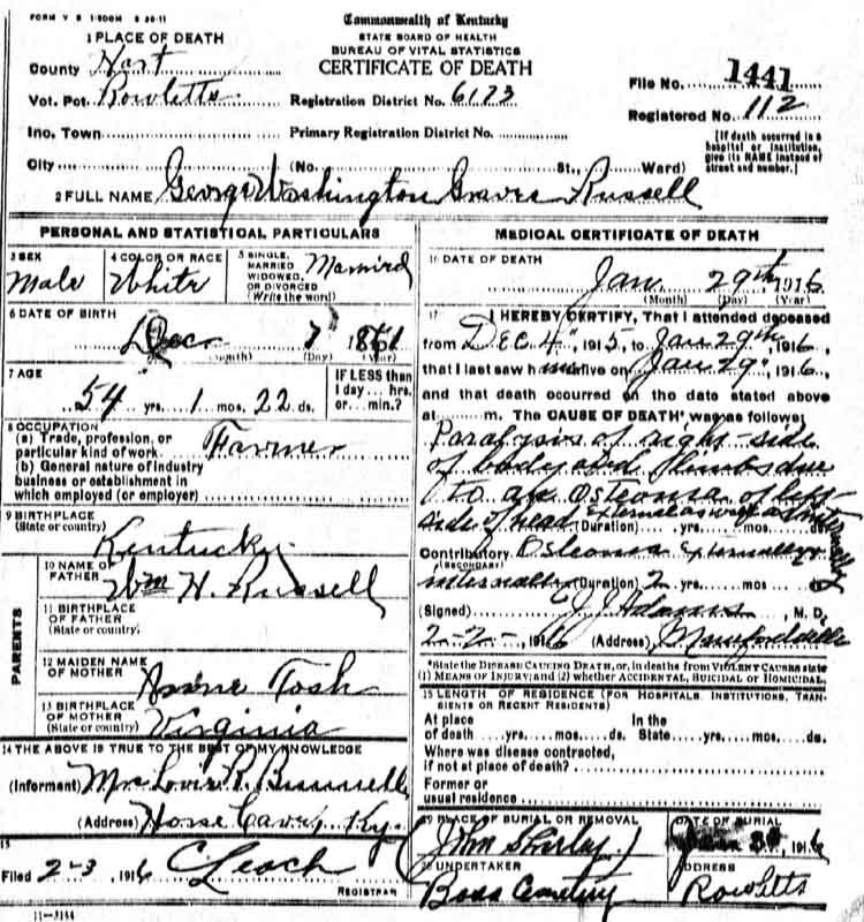 FORM V S 1-500M 8 26-11
Commonwealth of Kentucky
STATE BOARD OF HEALTH
BUREAU OF VITAL STATISTICS
CERTIFICATE OF DEATH
1 PLACE OF DEATH
County Hart
Vot. Pct. Rowletts
Inc. Town
City
Registration District No. 6173
Primary Registration District No.
(No. St., Ward)
File No. 1441
Registered No. 112
[If death occurred in a hospital or institution, give its NAME instead of street and number.]
2 FULL NAME George Washington Graves Russell
PERSONAL AND STATISTICAL PARTICULARS
3 SEX
Male
4 COLOR OR RACE
White
5 SINGLE, MARRIED WIDOWED, OR DIVORCED (Write the word)
Married
6 DATE OF BIRTH
Dec 7 1861
(Month) (Day) (Year)
7 AGE
54 yrs. 1 mos. 22 ds.
IF LESS than 1 day... hrs. or... min.?
8 OCCUPATION
(a) Trade, profession, or
particular kind of work Farmer
(b) General nature of industry
business or establishment in
which employed (or employer)
9 BIRTHPLACE
(State or country)
Kentucky
PARENTS
10 NAME OF FATHER
Wm H. Russell
11 BIRTHPLACE OF FATHER
(State or country)
12 MAIDEN NAME OF MOTHER
Tosh
13 BIRTHPLACE OF MOTHER
(State or country) Virginia
14 THE ABOVE IS TRUE TO THE BEST OF MY KNOWLEDGE
(Informant) Mrs R.
(Address) Horse Cave, Ky.
15
Filed 2-3, 1916 C Leach
REGISTRAR
11-3184
MEDICAL CERTIFICATE OF DEATH
16 DATE OF DEATH
Jan. 29th, 1916
(Month) (Day) (Year)
17 I HEREBY CERTIFY, That I attended deceased
from DEC 4", 1915, to Jan 29th, 1916,
that I last saw him alive on Jan 29", 1916,
and that death occurred on the date stated above
at m. The CAUSE OF DEATH* was as follows:
Paralysis of right-side
of body and limbs due
to an Osteoma of left
side of head externally as well as internally
(Duration) yrs. mos. ds.
Contributory Osteoma externally &
(SECONDARY)
internally (Duration) 2 yrs. mos
(Signed) J J Adams, M. D.
2-2-, 1916 (Address) Munfordville
*State the DISEASE CAUSING DEATH, or, in deaths from VIOLENT CAUSES state
(1) MEANS OF INJURY; and (2) whether ACCIDENTAL, SUICIDAL or HOMICIDAL.
18 LENGTH OF RESIDENCE (FOR HOSPITALS, INSTITUTIONS, TRANSIENTS OR RECENT RESIDENTS)
At place of death yrs. mos. ds. In the State yrs. mos. ds.
Where was disease contracted,
if not at place of death?
Former or
usual residence
19 PLACE OF BURIAL OR REMOVAL
(John Shirley)
DATE OF BURIAL
Jan 30, 1916
20 UNDERTAKER
Boss Cemetery
ADDRESS
Rowletts